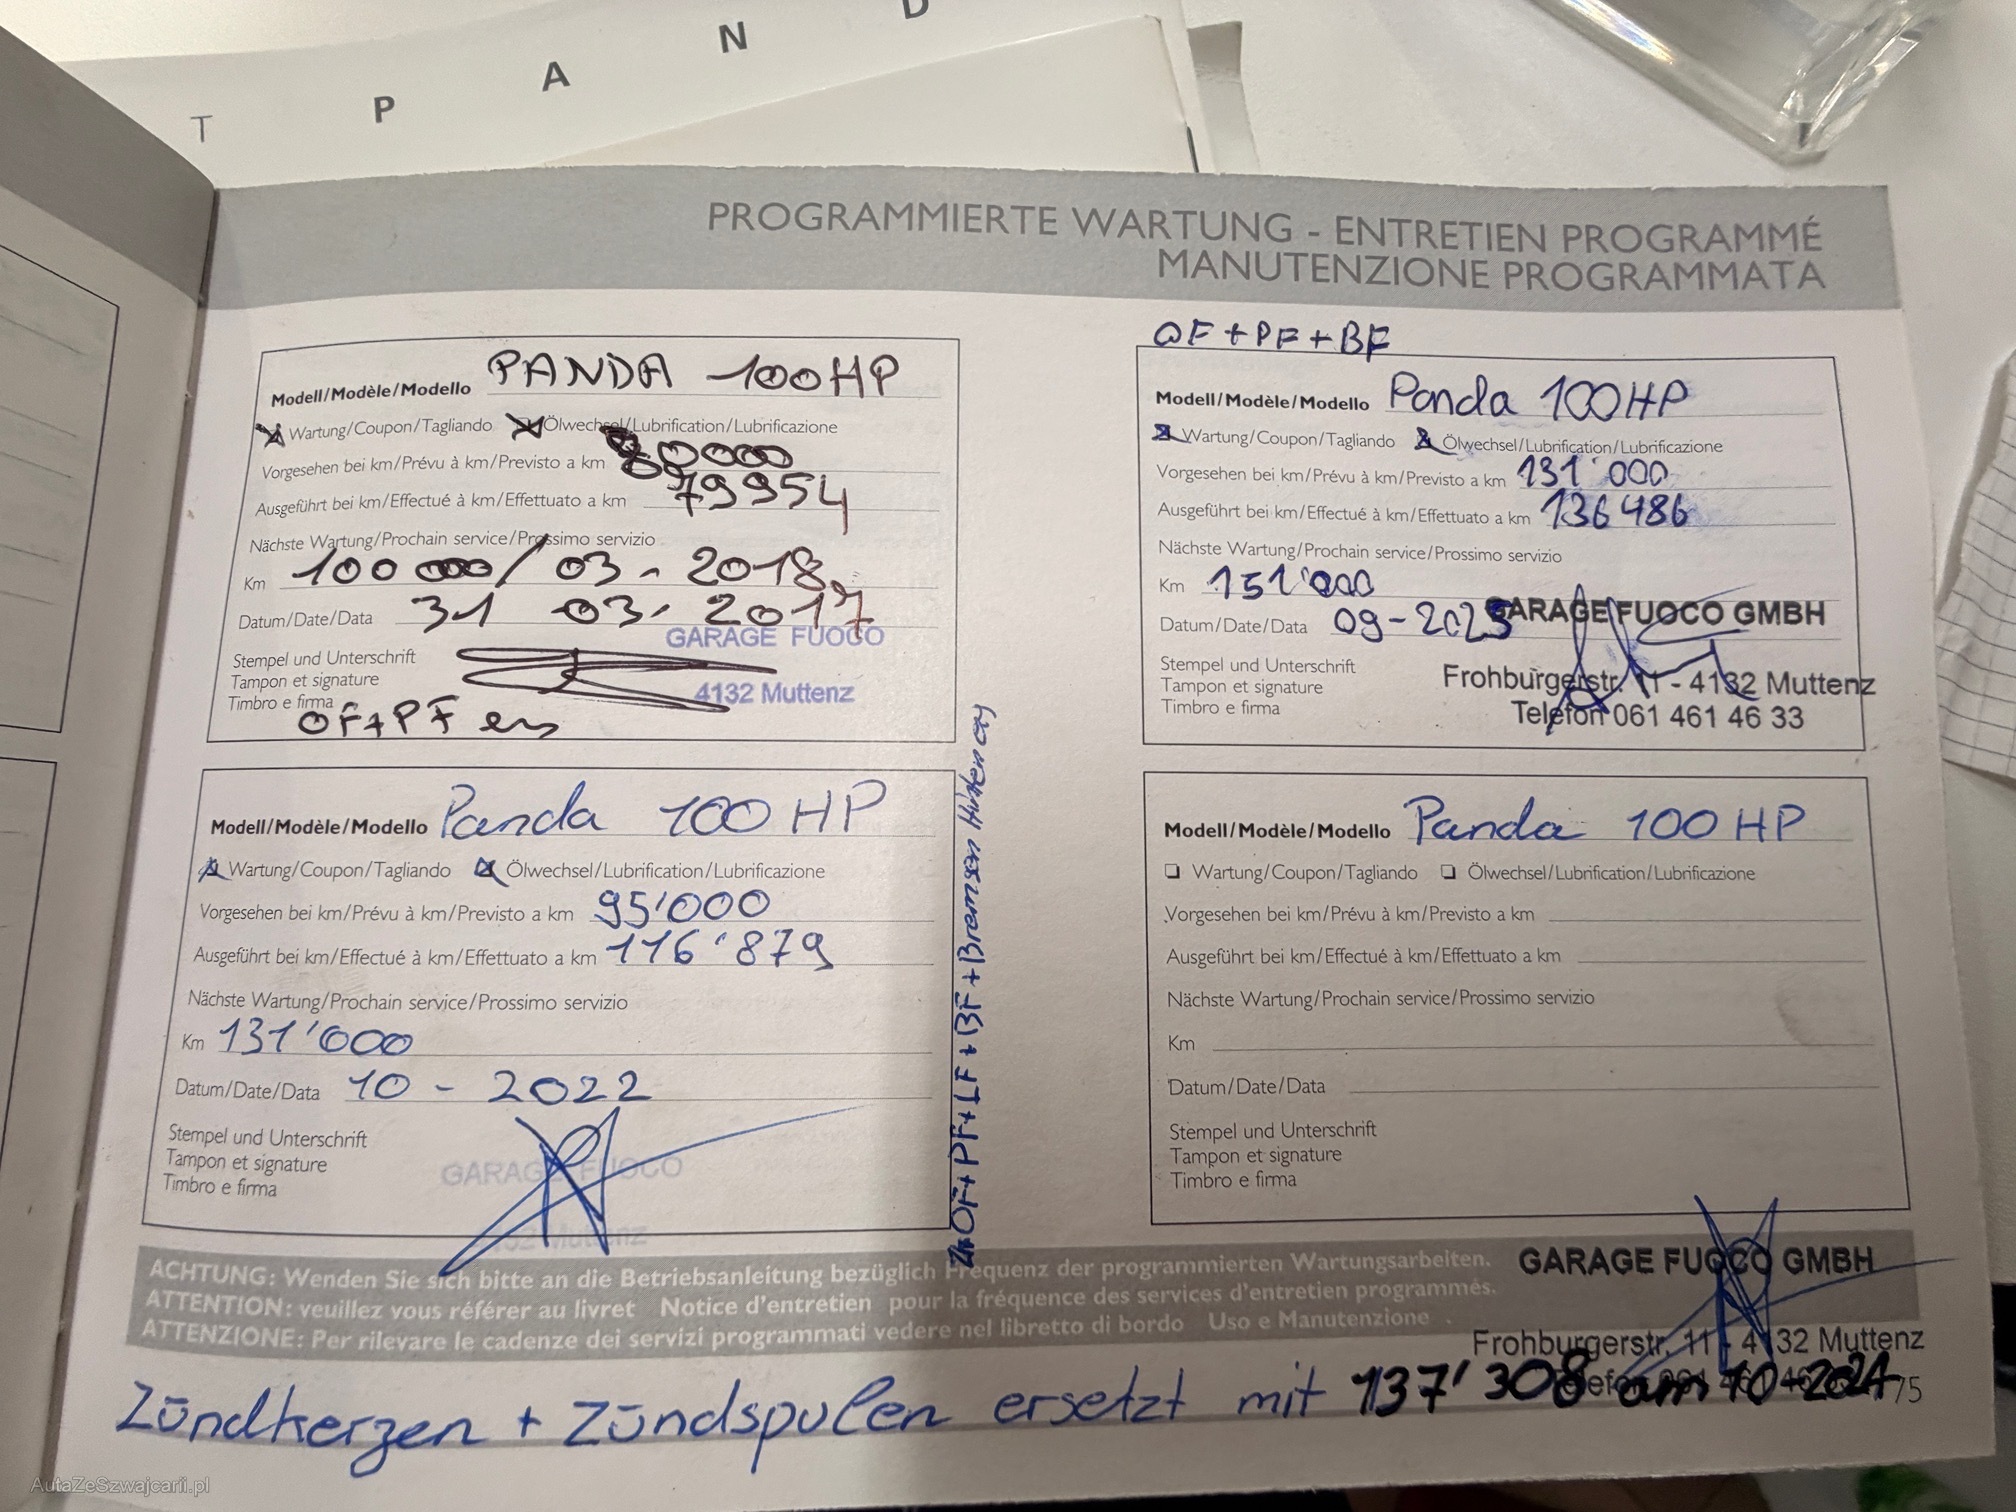 T P A N D
PROGRAMMIERTE WARTUNG - ENTRETIEN PROGRAMMÉ
MANUTENZIONE PROGRAMMATA
Modell/Modèle/Modello PANDA 100HP
Wartung/Coupon/Tagliando Ölwechsel/Lubrification/Lubrificazione
Vorgesehen bei km/Prévu à km/Previsto a km 80000
Ausgeführt bei km/Effectué à km/Effettuato a km 79954
Nächste Wartung/Prochain service/Prossimo servizio
Km 100 000 / 03 - 2018
Datum/Date/Data 31 03. 2017
GARAGE FUOCO
Stempel und Unterschrift
Tampon et signature
4132 Muttenz
Timbro e firma
OF+PF
OF+PF+BF
Modell/Modèle/Modello Panda 100HP
Wartung/Coupon/Tagliando Ölwechsel/Lubrification/Lubrificazione
Vorgesehen bei km/Prévu à km/Previsto a km 131'000
Ausgeführt bei km/Effectué à km/Effettuato a km 136486
Nächste Wartung/Prochain service/Prossimo servizio
Km 151'000
GARAGE FUOCO GMBH
Datum/Date/Data 09-2023
Stempel und Unterschrift
Frohburgerstr. 11 - 4132 Muttenz
Tampon et signature
Timbro e firma
Telefon 061 461 46 33
Modell/Modèle/Modello Panda 100 HP
Wartung/Coupon/Tagliando Ölwechsel/Lubrification/Lubrificazione
Vorgesehen bei km/Prévu à km/Previsto a km 95'000
Ausgeführt bei km/Effectué à km/Effettuato a km 116'879
Nächste Wartung/Prochain service/Prossimo servizio
Km 131'000
Datum/Date/Data 10 - 2022
Stempel und Unterschrift
Tampon et signature
Timbro e firma
GARAGE FUOCO
4132 Muttenz
OF+PF+LF+BF+Bremsen Hinten
Modell/Modèle/Modello Panda 100 HP
Wartung/Coupon/Tagliando Ölwechsel/Lubrification/Lubrificazione
Vorgesehen bei km/Prévu à km/Previsto a km
Ausgeführt bei km/Effectué à km/Effettuato a km
Nächste Wartung/Prochain service/Prossimo servizio
Km
Datum/Date/Data
Stempel und Unterschrift
Tampon et signature
Timbro e firma
ACHTUNG: Wenden Sie sich bitte an die Betriebsanleitung bezüglich Frequenz der programmierten Wartungsarbeiten.
ATTENTION: veuillez vous référer au livret Notice d'entretien pour la fréquence des services d'entretien programmés.
ATTENZIONE: Per rilevare le cadenze dei servizi programmati vedere nel libretto di bordo Uso e Manutenzione .
GARAGE FUOCO GMBH
Frohburgerstr. 11 - 4132 Muttenz
Zündkerzen + Zündspulen ersetzt mit 137'308 am 10-2024
75
AutaZeSzwajcarii.pl